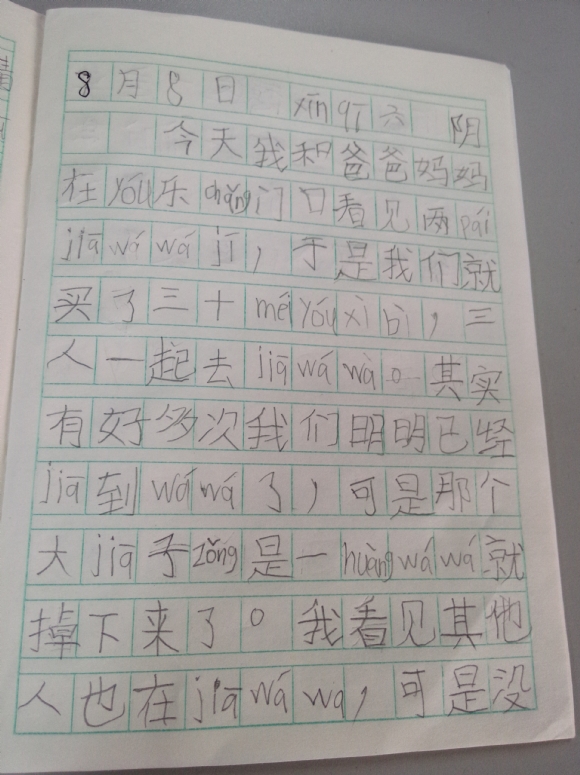 8月8日 xīn qī 六 阴
今天我和爸爸妈妈
在yóu乐chǎng门口看见两pái
jiā wá wá jī，于是我们就
买了三十méi yóu xì bì，三
人一起去jiā wá wà。其实
有好多次我们明明已经
jiā到wá wá了，可是那个
大jiā子zǒng是一huàng wá wá就
掉下来了。我看见其他
人也在jiā wá wa，可是没